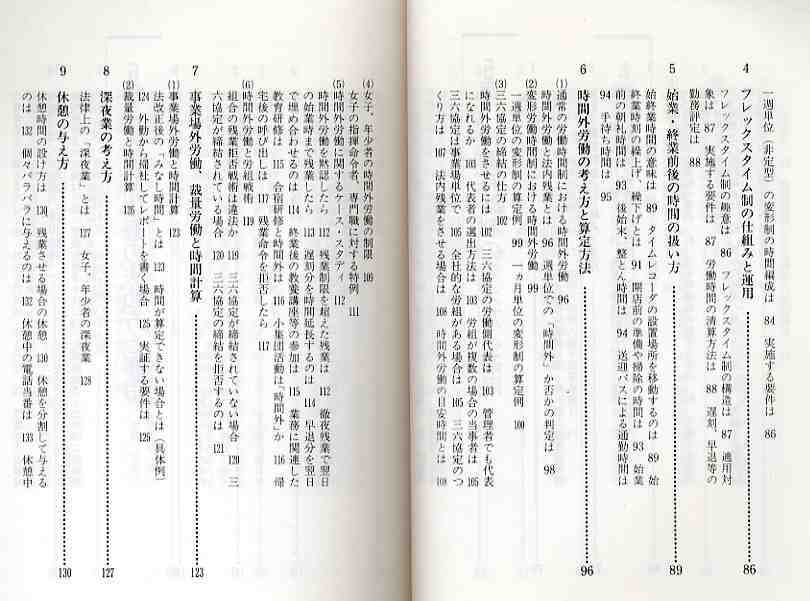 一週単位（非定型）の変形制の時間編成は 84 実施する要件は 86
4 フレックスタイム制の仕組みと運用 86
フレックスタイム制の趣意は 86 フレックスタイム制の構造は 87 適用対
象は 87 実施する要件は 87 労働時間の清算方法は 88 遅刻、早退等の
勤務評定は 88
5 始業・終業前後の時間の扱い方 89
始終業時間の意味は 89 タイムレコーダの設置場所を移動するのは 89 始
終業時刻の繰上げ、繰下げとは 91 開店前の準備や掃除の時間は 93 始業
前の朝礼時間は 93 後始末、整とん時間は 94 送迎バスによる通勤時間は
94 手待ち時間は 95
6 時間外労働の考え方と算定方法 96
(1) 通常の労働時間制における時間外労働 96
時間外労働と法内残業とは 96 週単位での「時間外」か否かの判定は 98
(2) 変形労働時間制における時間外労働 99
一週単位の変形制の算定例 99 一カ月単位の変形制の算定例 100
(3) 三六協定の締結の仕方 102
時間外労働をさせるには 102 三六協定の労働側代表は 103 管理者でも代表
になれるか 103 代表者の選出方法は 103 労組が複数の場合の当事者は 105
三六協定は事業場単位で 105 全社的な労組がある場合は 105 三六協定のつ
くり方は 107 法内残業をさせる場合は 108 時間外労働の目安時間とは 108
(4) 女子、年少者の時間外労働の制限 109
女子の指揮命令者、専門職に対する特例 111
(5) 時間外労働に関するケース・スタディ 112
時間外労働を黙認したら 112 残業制限を超えた残業は 112 徹夜残業で翌日
の始業時まで残業したら 113 遅刻分を時間延長するのは 114 早退分を翌日
で埋め合わせるのは 114 終業後の教養講座等の参加は 115 業務に関連した
教育研修は 115 合宿研修と時間外は 116 小集団活動は「時間外」か 116 帰
宅後の呼び出しは 117 残業命令を拒否したら 117
(6) 時間外労働と労組戦術 119
組合の残業拒否戦術は違法か 119 三六協定が締結されていない場合 120 三
六協定が締結されている場合 120 三六協定の締結を拒否するのは 121
7 事業場外労働、裁量労働と時間計算 123
(1) 事業場外労働と時間計算 123
法改正後の「みなし時間」とは 123 時間が算定できない場合とは（具体例）
124 外勤から帰社してレポートを書く場合 125 実証する要件は 126
(2) 裁量労働と時間計算 126
8 深夜業の考え方 127
法律上の「深夜業」とは 127 女子、年少者の深夜業 128
9 休憩の与え方 130
休憩時間の設け方は 130 残業させる場合の休憩 130 休憩を分割して与える
のは 132 個々バラバラに与えるのは 132 休憩中の電話当番は 133 休憩中